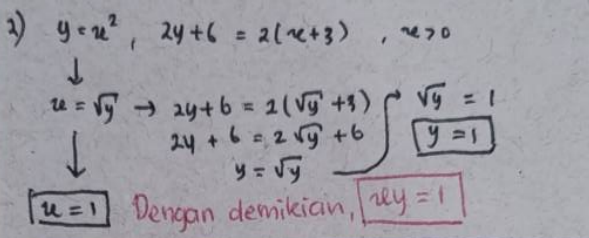 2) y = x², 2y+6 = 2(x+3), x>0
↓
x = √y → 2y+6 = 2(√y +3)
2y + 6 = 2√y +6
y = √y
√y = 1
y = 1
↓
x = 1
Dengan demikian, xy = 1